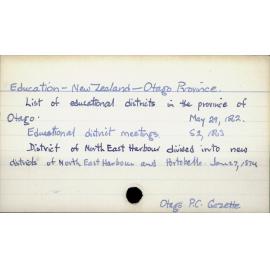 Education - New Zealand - Otago Province.
List of educational districts in the province of
Otago. May 29, 1862.
Educational district meetings. 1863
District of North East Harbour divided into new
districts of North East Harbour and Portobello. June 27, 1874
Otago P.C. Gazette